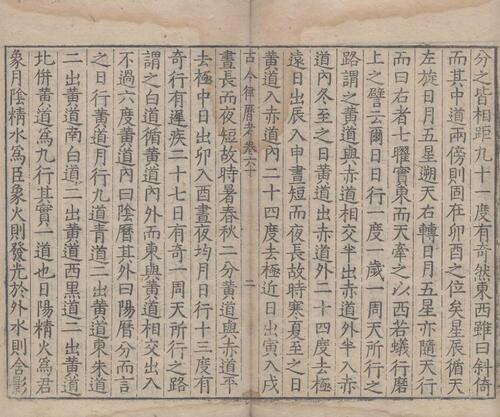 分之皆相距九十一度有奇然東西雖曰斜倚
而其中道兩傍則固在卯酉之位矣星辰循天
左旋日月五星遡天右轉日月五星亦隨天行
而曰右者七曜實東而天牽之以西若蟻行磨
上之譬云爾日日行一度一歲一周天所行之
路謂之黃道與赤道相交半出赤道外半入赤
道內冬至之日黃道出赤道外二十四度去極
遠日出辰入申晝短而夜長故時寒夏至之日
黃道入赤道內二十四度去極近日出寅入戌
古今律曆考卷六十
二
晝長而夜短故時暑春秋二分黃道與赤道平
去極中日出卯入酉晝夜均月日行十三度有
奇行有遲疾二十七日有奇一周天所行之路
謂之白道循黃道內外而東與黃道相交出入
不過六度黃道內曰陰曆其外曰陽曆分而言
之日行黃道月行九道青道二出黃道東朱道
二出黃道南白道二出黃道西黑道二出黃道
北併黃道為九行其實一道也日陽精火為君
象月陰精水為臣象火則發光於外水則含影